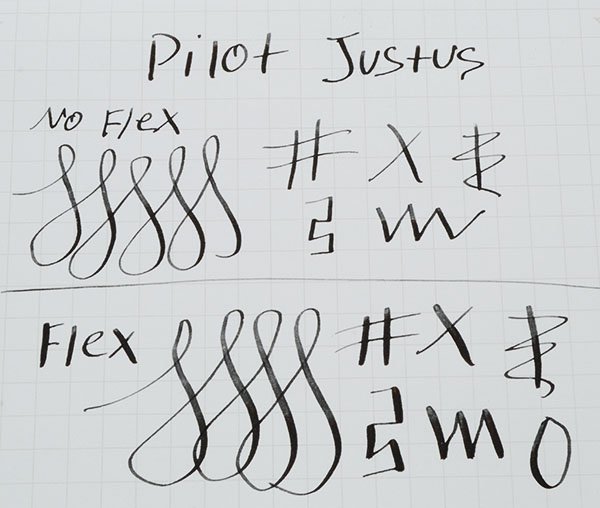 Pilot Justus
No Flex
Flex